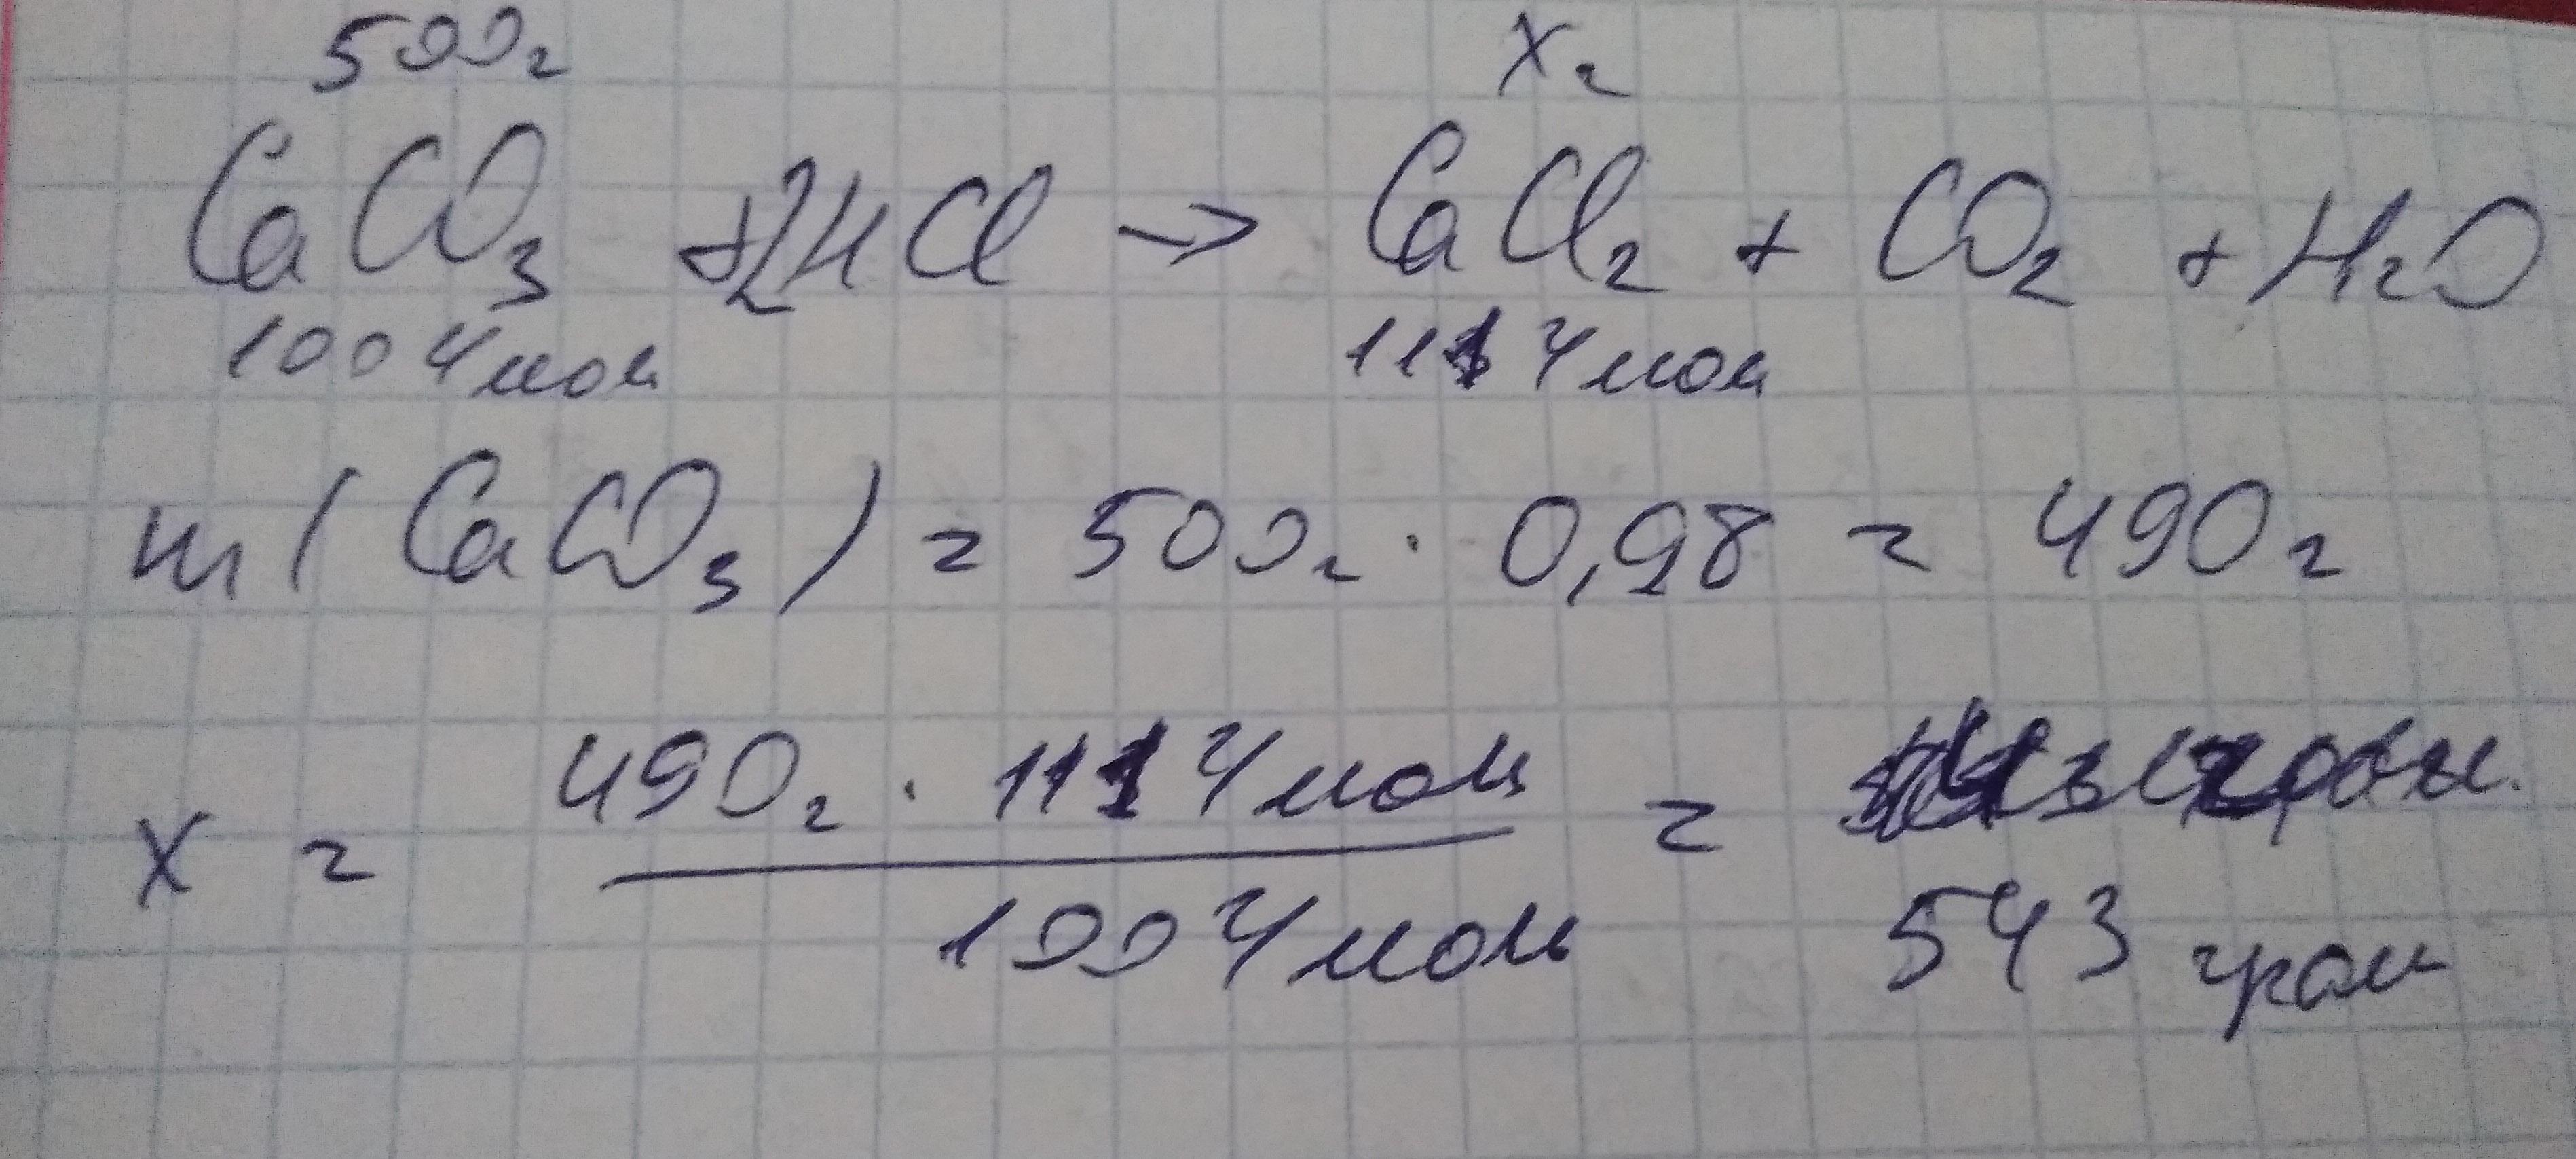 500г
хг
CaCO₃ + 2HCl → CaCl₂ + CO₂ + H₂O
100 г/моль
111 г/моль
m(CaCO₃) = 500г · 0,98 = 490г
490г · 111 г/моль
х = =
100 г/моль
543 грам